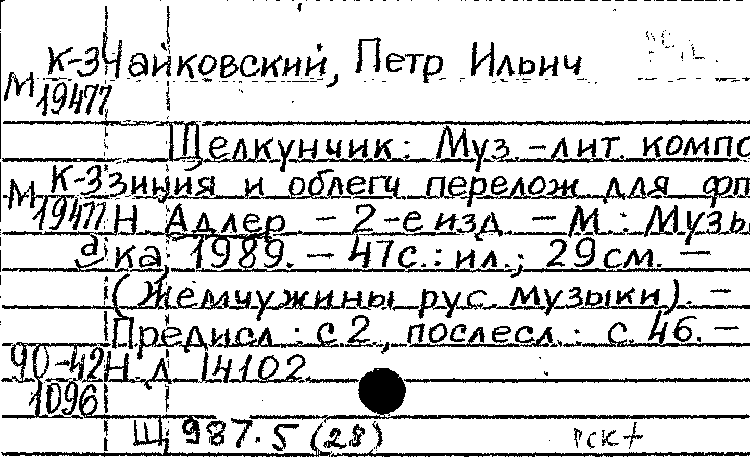 К-3 Чайковский, Петр Ильич
М 19477
Щелкунчик: Муз.-лит. компо
К-3 зиция и облегч перелож для фп
М 19477 Н. Адлер - 2-е изд. - М.: Музы
д ка, 1989. - 47с.: ил.; 29 см. -
(Жемчужины рус. музыки). -
Предисл.: с 2, послесл.: с. 46. -
90-42 Н.д. 14102
1096
Щ 987.5 (28)
рск+